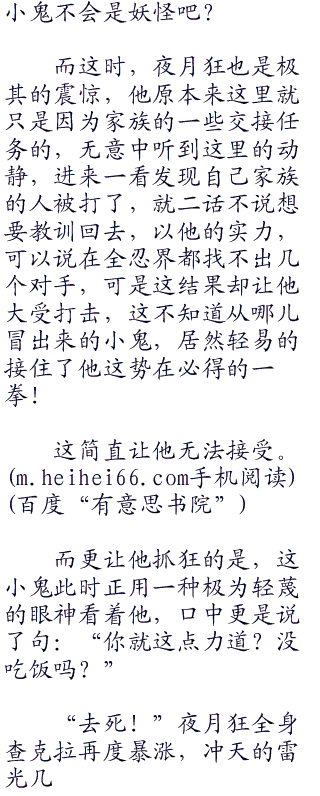 小鬼不会是妖怪吧？
而这时，夜月狂也是极
其的震惊，他原本来这里就
只是因为家族的一些交接任
务的，无意中听到这里的动
静，进来一看发现自己家族
的人被打了，就二话不说想
要教训回去，以他的实力，
可以说在全忍界都找不出几
个对手，可是这结果却让他
大受打击，这不知道从哪儿
冒出来的小鬼，居然轻易的
接住了他这势在必得的一
拳！
这简直让他无法接受。
(m.heihei66.com手机阅读)
(百度“有意思书院”)
而更让他抓狂的是，这
小鬼此时正用一种极为轻蔑
的眼神看着他，口中更是说
了句：“你就这点力道？没
吃饭吗？”
“去死！”夜月狂全身
查克拉再度暴涨，冲天的雷
光几